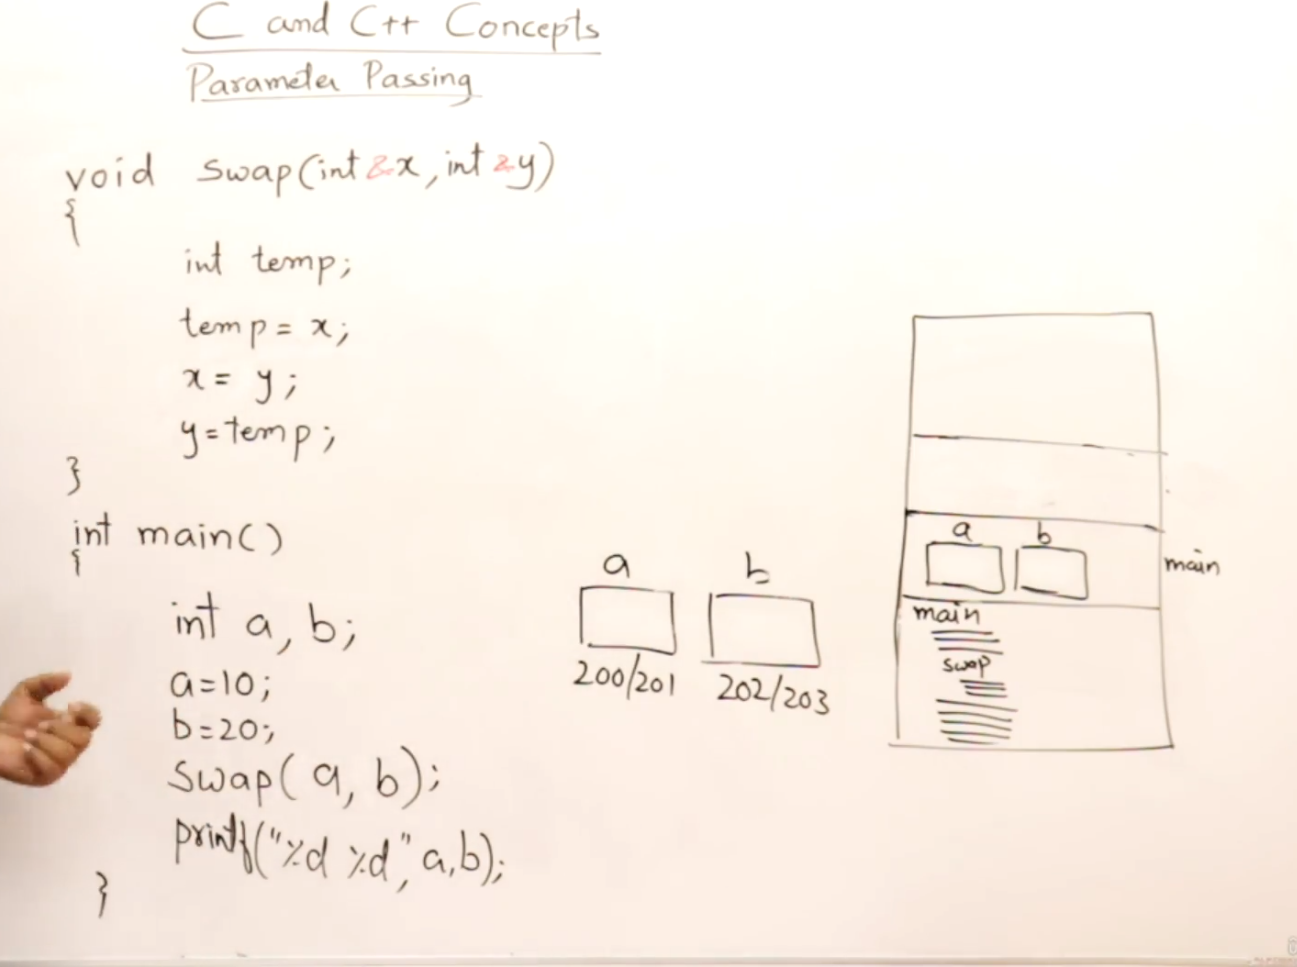 C and C++ Concepts
Parameter Passing
void swap(int &x, int &y)
{
int temp;
temp = x;
x = y;
y = temp;
}
int main()
{
int a, b;
a=10;
b=20;
swap( a, b);
printf("%d %d", a,b);
}
a b
200/201 202/203
a b
main
main
swap